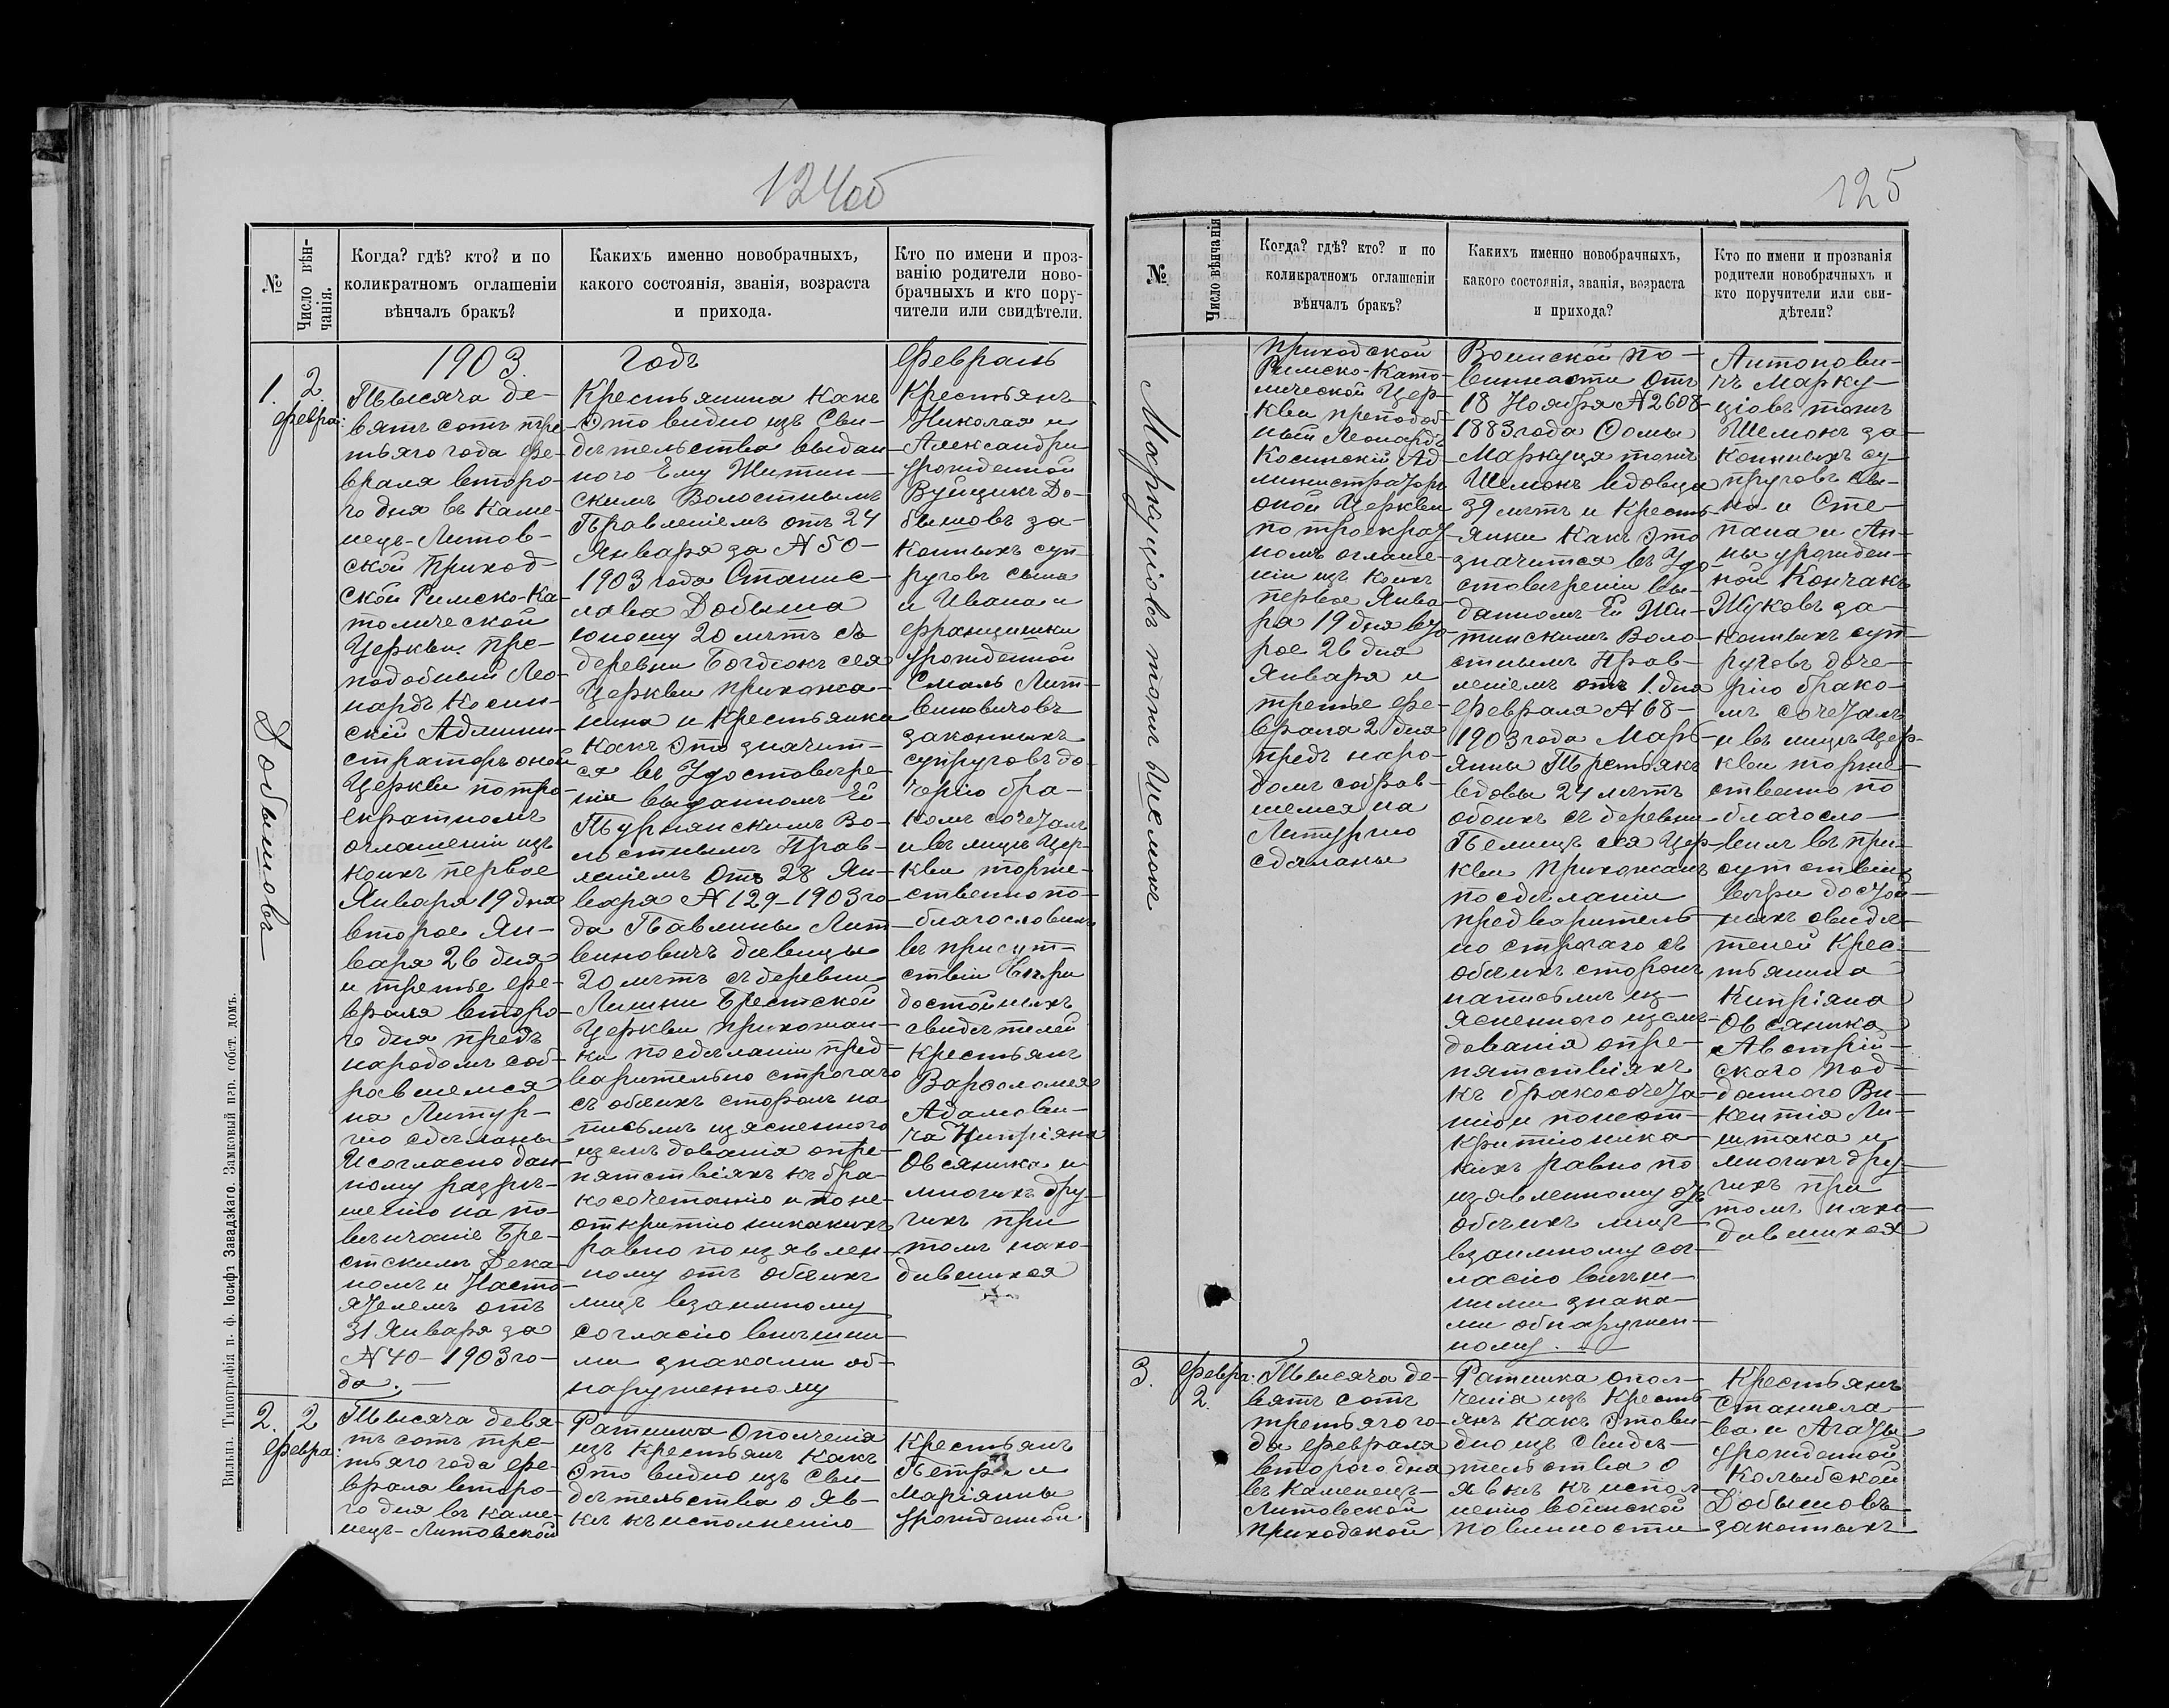 124об
№
Число вѣн-
чанія.
Когда? гдѣ? кто? и по
коликратномъ оглашеніи
вѣнчалъ бракъ?
Какихъ именно новобрачныхъ,
какого состоянія, званія, возраста
и прихода.
Кто по имени и проз-
ванію родители ново-
брачныхъ и кто пору-
чители или свидѣтели.
1903.
годъ
Февраль
1.
2
февра:
Добышовъ
Тысяча де-
вять сотъ тре-
тьяго года фе-
враля второ-
го дня въ Каме-
нецъ-Литов-
ской Приход-
ской Римско-Ка-
толической
Церкви. Пре-
подобный Лео-
нардъ Косин-
скій Админи-
страторъ оной
Церкви по тро-
екратномъ
оглашеніи изъ
коихъ первое
Января 19 дня
второе Ян-
варя 26 дня
и третье фе-
враля второ-
го дня предъ
народомъ соб-
равшемся
на Литур-
гію сдѣланы
И согласно дан-
ному разрѣ-
шенію на по-
вѣнчаніе Бре-
стскимъ Дека-
номъ и Насто-
ятелемъ отъ
31 Января за
№ 40 - 1903 го-
да. —
Крестьянина Какъ
Это видно изъ Сви-
дѣтельства выдан-
ного Ему Житин-
скимъ Волостнымъ
Правленіемъ отъ 24
Января за № 50 -
1903 года Станис-
лава Добыша
юношу 20 лѣтъ съ
деревни Богдюкъ сея
Церкви прихожа-
нина и Крестьянки
какъ Это значит-
ся въ Удостовѣре-
ніи выданномъ Ей
Турнянскимъ Во-
лостнымъ Прав-
леніемъ Отъ 28 Ян-
варя № 129 - 1903 го-
да Павлины Лит-
виновичъ дѣвицы
20 лѣтъ съ деревни
Лишки Брестской
Церкви прихожан-
ки по сдѣланіи пред-
варительно строгаго
съ обѣихъ сторонъ на
письмѣ изясненного
изслѣдованія о пре-
пятствіяхъ къ бра-
косочетанію и по не-
открытію никакихъ
равно по изявлен-
ному отъ обѣихъ
лицъ взаимному
согласію внѣшни-
ми знаками об-
наруженному
Крестьянъ
Николая и
Александры
урожденной
Вуйцикъ До-
бышовъ за-
конныхъ суп-
руговъ сына
и Ивана и
Францишки
урожденной
Смаль Лит-
виновичовъ
законныхъ
супруговъ до-
черію бра-
комъ сочеталъ
и въ лицѣ Цер-
кви торже-
ственно по-
благословилъ
въ присут-
ствіи вѣры
достойныхъ
свидѣтелей
крестьянъ
Варфоломея
Адамови-
ча Кипріяна
Овсяника и
многихъ дру-
гихъ при
томъ нахо-
дившихся
2.
2
февра:
Тысяча девя-
ть сотъ тре-
тьяго года фе-
враля второ-
го дня въ Каме-
нецъ-Литовской
Ратника Ополченія
изъ Крестьянъ Какъ
Это видно изъ Сви-
дѣтельства о Яв-
кѣ къ исполненію
Крестьянъ
Петра и
Маріянны
урожденной
Вильна. Типографія п. ф. Іосифъ Завадзкаго. Замковый пар. собст. домъ.
125
№
Число вѣнчанія
Когда? гдѣ? кто? и по
коликратномъ оглашеніи
вѣнчалъ бракъ?
Какихъ именно новобрачныхъ,
какого состоянія, званія, возраста
и прихода?
Кто по имени и прозванія
родители новобрачныхъ и
кто поручители или сви-
дѣтели?
Маркуціовъ тожъ Шемокъ
приходской
Римско-Като-
лической Цер-
кви преподоб-
ный Леонардъ
Косинскій Ад-
министраторъ
оной Церкви
по троекрат-
номъ оглаше-
ніи изъ коихъ
первое Янва-
ря 19 дня вто-
рое 26 дня
Января и
третье фе-
враля 2 дня
предъ наро-
домъ собрав-
шемся на
Литургію
сдѣланы
Воинской по-
винности отъ
18 Ноября № 2608
1883 года Фомы
Маркуця тожъ
Шемокъ вдовца
39 лѣтъ и Кресть-
янки Какъ Это
значится въ Удо-
стовѣреніи вы-
данномъ Ей Жи-
тинскимъ Воло-
стнымъ Прав-
леніемъ отъ 1 дня
февраля № 68 -
1903 года Марь-
янны Третьякъ
вдовы 24 лѣтъ
обоихъ съ деревни
Пелищъ сея Цер-
кви Прихожанъ
по сдѣланіи
предваритель-
но строгаго съ
обѣихъ сторонъ
на письмѣ из-
ясненного изслѣ-
дованія о пре-
пятствіяхъ
къ бракосочета-
нію и по неот-
крытію ника-
кихъ равно по
изявленному отъ
обѣихъ лицъ
взаимному сог-
ласію внѣш-
ними знака-
ми обнаружен-
ному.
Антонови-
чъ Марку-
ціовъ тожъ
Шемокъ за-
конныхъ су-
пруговъ сы-
на и Сте-
пана и Ан-
ны урожден-
ной Кончакъ
Жуковъ за-
конныхъ суп-
руговъ доче-
рію брако-
мъ сочеталъ
и въ лицѣ Цер-
кви торже-
ственно по-
благосло-
вилъ въ при-
сутствіи
вѣры достой-
ныхъ свидѣ-
телей Крес-
тьянина
Кипріяна
Овсяника
Австрій-
скаго под-
данного Ви-
кентія Ли-
штака и
многихъ дру-
гихъ при
томъ нахо-
дившихся
3.
февра:
2.
Тысяча де-
вять сотъ
третьяго го-
да февраля
второго дня
въ Каменецъ-
Литовской
приходской
Ратника опол-
ченія изъ Кресть-
янъ какъ Это ви-
дно изъ свидѣ-
тельства о
явкѣ къ испол-
ненію воинской
повинности
Крестьянъ
Станисла-
ва и Агаты
урожденной
Колыбской
Добышовъ
законныхъ